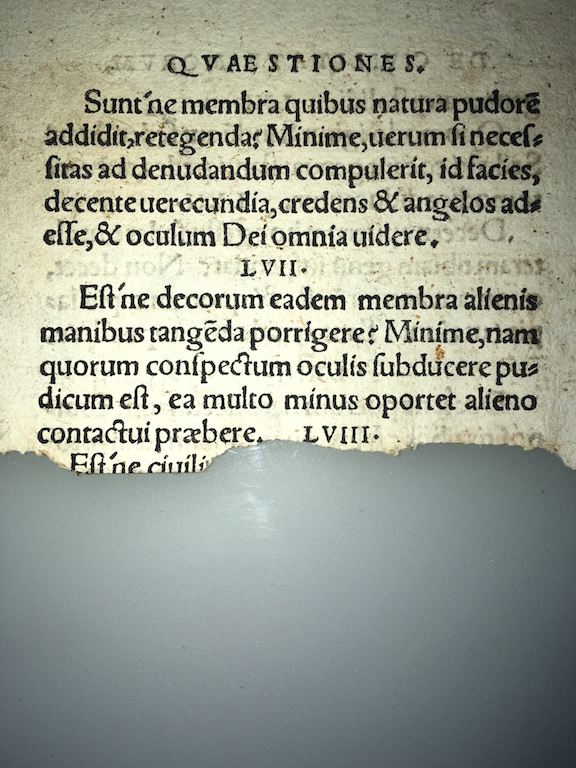 QVAESTIONES.
Sunt'ne membra quibus natura pudorē
addidit, retegenda? Minime, uerum si neces⸗
sitas ad denudandum compulerit, id facies,
decente uerecundia, credens & angelos ad⸗
esse, & oculum Dei omnia uidere.
LVII.
Est'ne decorum eadem membra alienis
manibus tangēda porrigere? Minime, nam
quorum conspectum oculis subducere pu⸗
dicum est, ea multo minus oportet alieno
contactui præbere. LVIII.
Est'ne